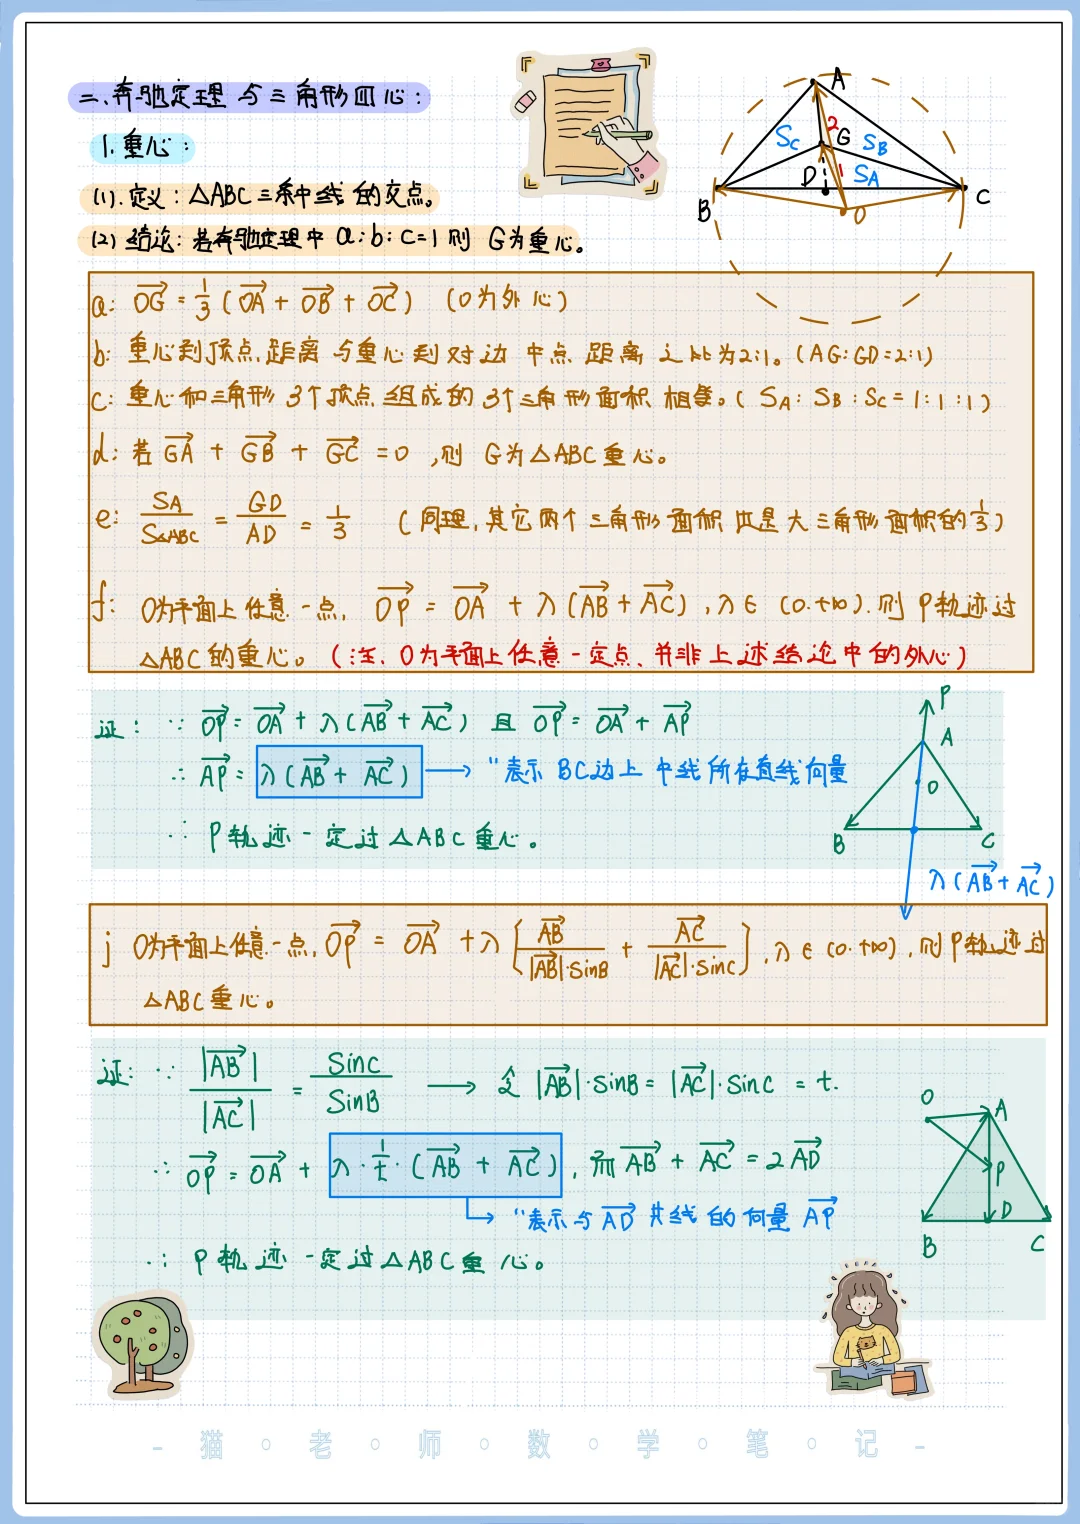 二、奔驰定理与三角形四心:
1.重心:
(1).定义:△ABC三条中线的交点。
(2)结论:若奔驰定理中 a:b:c=1则 G为重心。
A
2
G
Sc
SB
1
SA
D
B
C
O
a: OG = 1/3 (OA + OB + OC) (O为外心)
b: 重心到顶点距离与重心到对边中点距离之比为2:1。(AG:GD=2:1)
c: 重心和三角形3个顶点组成的3个三角形面积相等。(SA:SB:Sc=1:1:1)
d: 若 GA + GB + GC = 0,则 G为△ABC重心。
e: SA/S△ABC = GD/AD = 1/3 (同理,其它两个三角形面积也是大三角形面积的1/3)
f: O为平面上任意一点, OP = OA + λ(AB + AC), λ∈(0.+∞).则P轨迹过
△ABC的重心。(注、O为平面上任意一定点、并非上述结论中的外心)
证: ∵ OP = OA + λ(AB + AC) 且 OP = OA + AP
∴ AP = λ(AB + AC) → "表示BC边上中线所在直线向量
∴ P轨迹一定过△ABC重心。
P
A
O
B
C
λ(AB + AC)
j O为平面上任意一点, OP = OA + λ[AB/|AB|·sinB + AC/|AC|·sinC], λ∈(0.+∞), 则P轨迹过
△ABC重心。
证: ∵ |AB|/|AC| = sinC/sinB → 令 |AB|·sinB = |AC|·sinC = t.
∴ OP = OA + λ·1/t·(AB + AC), 而 AB + AC = 2AD
"表示与AD共线的向量AP
∴ P轨迹一定过△ABC重心。
O
A
P
D
B
C
- 猫·老·师·数·学·笔·记 -